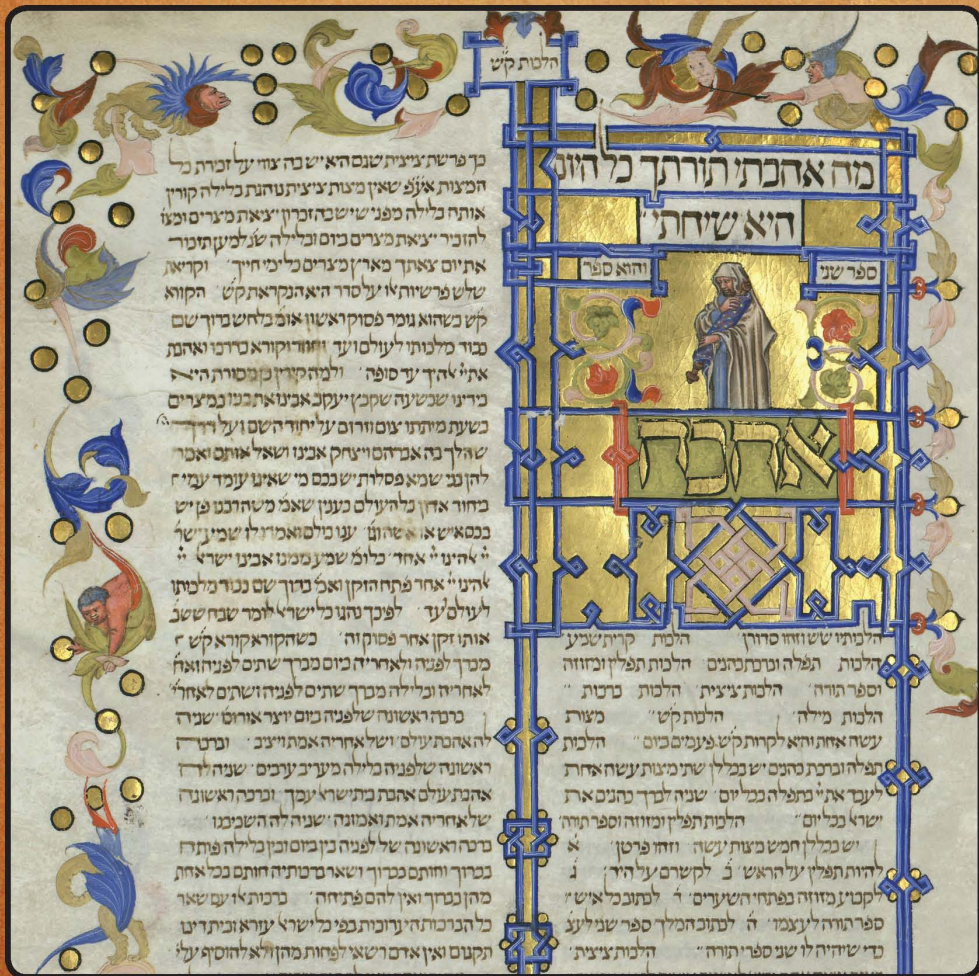 הלכות ק״ש
מה אהבתי תורתך כל היום
היא שיחתי
ספר שני
והוא ספר
אהבה
הלכותיו שש וזהו סדורן הלכות קרית שמע
הלכות תפלה וברכת כהנים הלכות תפלין ומזוזה
וספר תורה הלכות ציצית הלכות ברכות
הלכות מילה הלכות ק״ש מצות
עשה אחת והיא לקרות ק״ש פעמים ביום הלכות
תפלה וברכת כהנים יש בכללן שתי מצות עשה אחת
לעבד את יי בתפלה בכל יום שניה לברך כהנים את
ישרא בכל יום הלכות תפלין ומזוזה וספר תורה
יש בכללן חמש מצות עשה וזהו פרטן א
להיות תפלין על הראש ב לקשרם על היד ג
לקבוע מזוזה בפתחי השערים ד לכתוב כל איש
ספר תורה לעצמו ה לכתוב המלך ספר שני לעצ
כדי שיהיה לו שני ספרי תורה הלכות ציצית
כך פרשת ציצית שגם היא יש בה צווי על זכירת כל
המצות אע״פ שאין מצות ציצית נוהגת בלילה קורין
אותה בלילה מפני שיש בה זכרון יציאת מצרים ומצו
להזכיר יציאת מצרים ביום ובלילה שנ׳ למען תזכור
את יום צאתך מארץ מצרים כל ימי חייך וקריאת
שלש פרשיות אלו על סדר היא הנקראת ק״ש הקורא
ק״ש כשהוא גומר פסוק ראשון אומ׳ בלחש ברוך שם
כבוד מלכותו לעולם ועד וחוזר וקורא כדרכו ואהבת
את יי אלהיך עד סופה ולמה קורין כן מסורת היא
בידינו שבשעה שקבץ יעקב אבינו את בניו במצרים
בשעת מיתתו צום וזרזם על יחוד השם ועל דרך
שהלך בה אברהם ויצחק אבינו ושאל אותם ואמר
להן בני שמא פסלות יש בכם מי שאינו עומד עמי
ביחוד אדון כל העולם כענין שאמ׳ משה רבנו פן יש
בכם איש או אשה וגו׳ ענו כולם ואמרו לו שמע ישר
יי אלהינו יי אחד כלומ׳ שמע ממנו אבינו ישרא יי
אלהינו יי אחד פתח הזקן ואמ׳ ברוך שם כבוד מלכותו
לעולם ועד לפיכך נהגו כל ישרא לומר שבח ששבח
אותו זקן אחר פסוק זה כשהקורא קורא ק״ש
מברך לפניה ולאחריה ביום מברך שתים לפניה ואח׳
לאחריה ובלילה מברך שתים לפניה ושתים לאחרי׳
ברכה ראשונה שלפניה ביום יוצר אור וגו׳ שניה
לה אהבת עולם ושלאחריה אמת ויציב וברכה
ראשונה שלפניה בלילה מעריב ערבים שניה לה
אהבת עולם אהבת בית ישרא עמך וברכה ראשונה
שלאחריה אמת ואמונה שניה לה השכיבנו
ברכה ראשונה שלפניה בין ביום ובין בלילה פותח
בברוך וחותם בברוך ושאר ברכותיה חותם בכל אחת
מהן בברוך ואין להם פתיחה ברכות אלו עם שאר
כל הברכות הערוכות בפי כל ישרא עזרא ובית דינו
תקנום ואין אדם רשאי לפחות מהן ולא להוסיף עלי